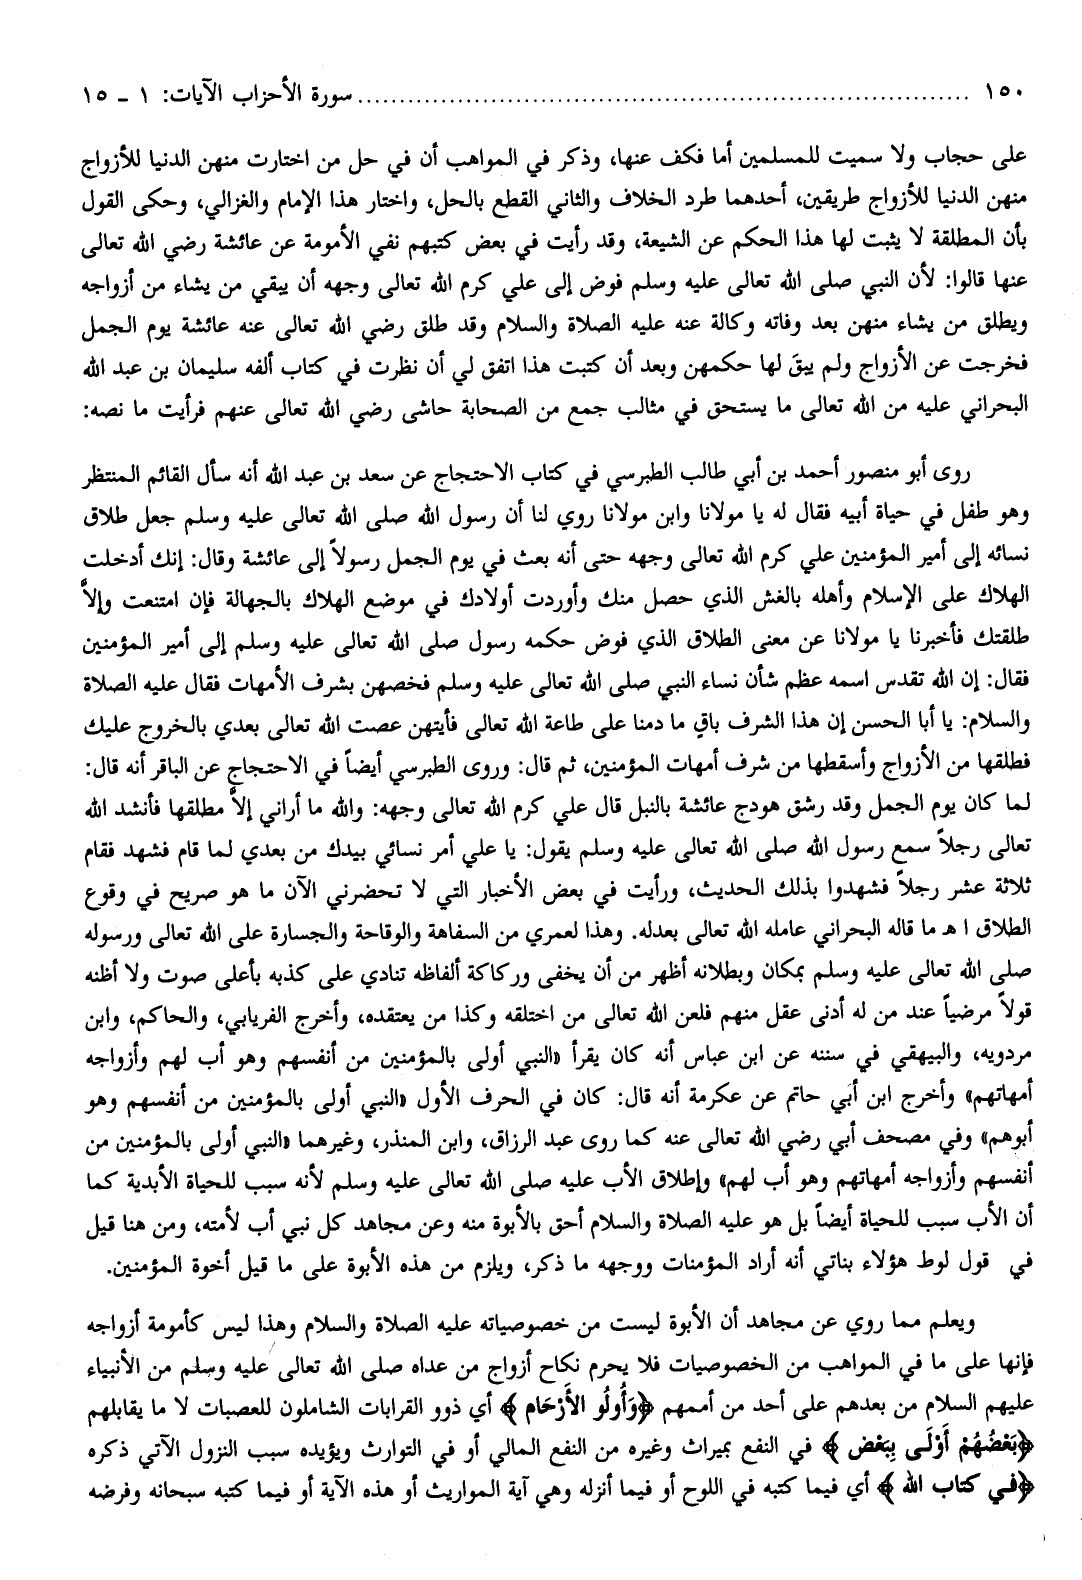 ١٥٠ ........................................ سورة الأحزاب الآيات: ١ - ١٥
على حجاب ولا سميت للمسلمين أما فكف عنها، وذكر في المواهب أن في حل من اختارت منهن الدنيا للأزواج
منهن الدنيا للأزواج طريقين، أحدهما طرد الخلاف والثاني القطع بالحل، واختار هذا الإمام والغزالي، وحكى القول
بأن المطلقة لا يثبت لها هذا الحكم عن الشيعة، وقد رأيت في بعض كتبهم نفي الأمومة عن عائشة رضي الله تعالى
عنها قالوا: لأن النبي صلى الله تعالى عليه وسلم فوض إلى علي كرم الله تعالى وجهه أن يبقي من يشاء من أزواجه
ويطلق من يشاء منهن بعد وفاته وكالة عنه عليه الصلاة والسلام وقد طلق رضي الله تعالى عنه عائشة يوم الجمل
فخرجت عن الأزواج ولم يبقَ لها حكمهن وبعد أن كتبت هذا اتفق لي أن نظرت في كتاب ألفه سليمان بن عبد الله
البحراني عليه من الله تعالى ما يستحق في مثالب جمع من الصحابة حاشى رضي الله تعالى عنهم فرأيت ما نصه:
روى أبو منصور أحمد بن أبي طالب الطبرسي في كتاب الاحتجاج عن سعد بن عبد الله أنه سأل القائم المنتظر
وهو طفل في حياة أبيه فقال له يا مولانا وابن مولانا روي لنا أن رسول الله صلى الله تعالى عليه وسلم جعل طلاق
نسائه إلى أمير المؤمنين علي كرم الله تعالى وجهه حتى أنه بعث في يوم الجمل رسولاً إلى عائشة وقال: إنك أدخلت
الهلاك على الإسلام وأهله بالغش الذي حصل منك وأوردت أولادك في موضع الهلاك بالجهالة فإن امتنعت وإلاَّ
طلقتك فأخبرنا يا مولانا عن معنى الطلاق الذي فوض حكمه رسول صلى الله تعالى عليه وسلم إلى أمير المؤمنين
فقال: إن الله تقدس اسمه عظم شأن نساء النبي صلى الله تعالى عليه وسلم فخصهن بشرف الأمهات فقال عليه الصلاة
والسلام: يا أبا الحسن إن هذا الشرف باقٍ ما دمنا على طاعة الله تعالى فأيتهن عصت الله تعالى بعدي بالخروج عليك
فطلقها من الأزواج وأسقطها من شرف أمهات المؤمنين، ثم قال: وروى الطبرسي أيضاً في الاحتجاج عن الباقر أنه قال:
لما كان يوم الجمل وقد رشق هودج عائشة بالنبل قال علي كرم الله تعالى وجهه: والله ما أراني إلاَّ مطلقها فأنشد الله
تعالى رجلاً سمع رسول الله صلى الله تعالى عليه وسلم يقول: يا علي أمر نسائي بيدك من بعدي لما قام فشهد فقام
ثلاثة عشر رجلاً فشهدوا بذلك الحديث، ورأيت في بعض الأخبار التي لا تحضرني الآن ما هو صريح في وقوع
الطلاق ا هـ ما قاله البحراني عامله الله تعالى بعدله. وهذا لعمري من السفاهة والوقاحة والجسارة على الله تعالى ورسوله
صلى الله تعالى عليه وسلم بمكان وبطلانه أظهر من أن يخفى وركاكة ألفاظه تنادي على كذبه بأعلى صوت ولا أظنه
قولاً مرضياً عند من له أدنى عقل منهم فلعن الله تعالى من اختلقه وكذا من يعتقده، وأخرج الفريابي، والحاكم، وابن
مردويه، والبيهقي في سننه عن ابن عباس أنه كان يقرأ «النبي أولى بالمؤمنين من أنفسهم وهو أب لهم وأزواجه
أمهاتهم» وأخرج ابن أبي حاتم عن عكرمة أنه قال: كان في الحرف الأول «النبي أولى بالمؤمنين من أنفسهم وهو
أبوهم» وفي مصحف أبي رضي الله تعالى عنه كما روى عبد الرزاق، وابن المنذر، وغيرهما «النبي أولى بالمؤمنين من
أنفسهم وأزواجه أمهاتهم وهو أب لهم» وإطلاق الأب عليه صلى الله تعالى عليه وسلم لأنه سبب للحياة الأبدية كما
أن الأب سبب للحياة أيضاً بل هو عليه الصلاة والسلام أحق بالأبوة منه وعن مجاهد كل نبي أب لأمته، ومن هنا قيل
في قول لوط هؤلاء بناتي أنه أراد المؤمنات ووجهه ما ذكر، ويلزم من هذه الأبوة على ما قيل أخوة المؤمنين.
ويعلم مما روي عن مجاهد أن الأبوة ليست من خصوصياته عليه الصلاة والسلام وهذا ليس كأمومة أزواجه
فإنها على ما في المواهب من الخصوصيات فلا يحرم نكاح أزواج من عداه صلى الله تعالى عليه وسلم من الأنبياء
عليهم السلام من بعدهم على أحد من أممهم ﴿وَأُولُو الأَرْحَام﴾ أي ذوو القرابات الشاملون للعصبات لا ما يقابلهم
﴿بَعْضُهُمْ أَوْلَى بِبَعْض﴾ في النفع بميراث وغيره من النفع المالي أو في التوارث ويؤيده سبب النزول الآتي ذكره
﴿في كتاب الله﴾ أي فيما كتبه في اللوح أو فيما أنزله وهي آية المواريث أو هذه الآية أو فيما كتبه سبحانه وفرضه